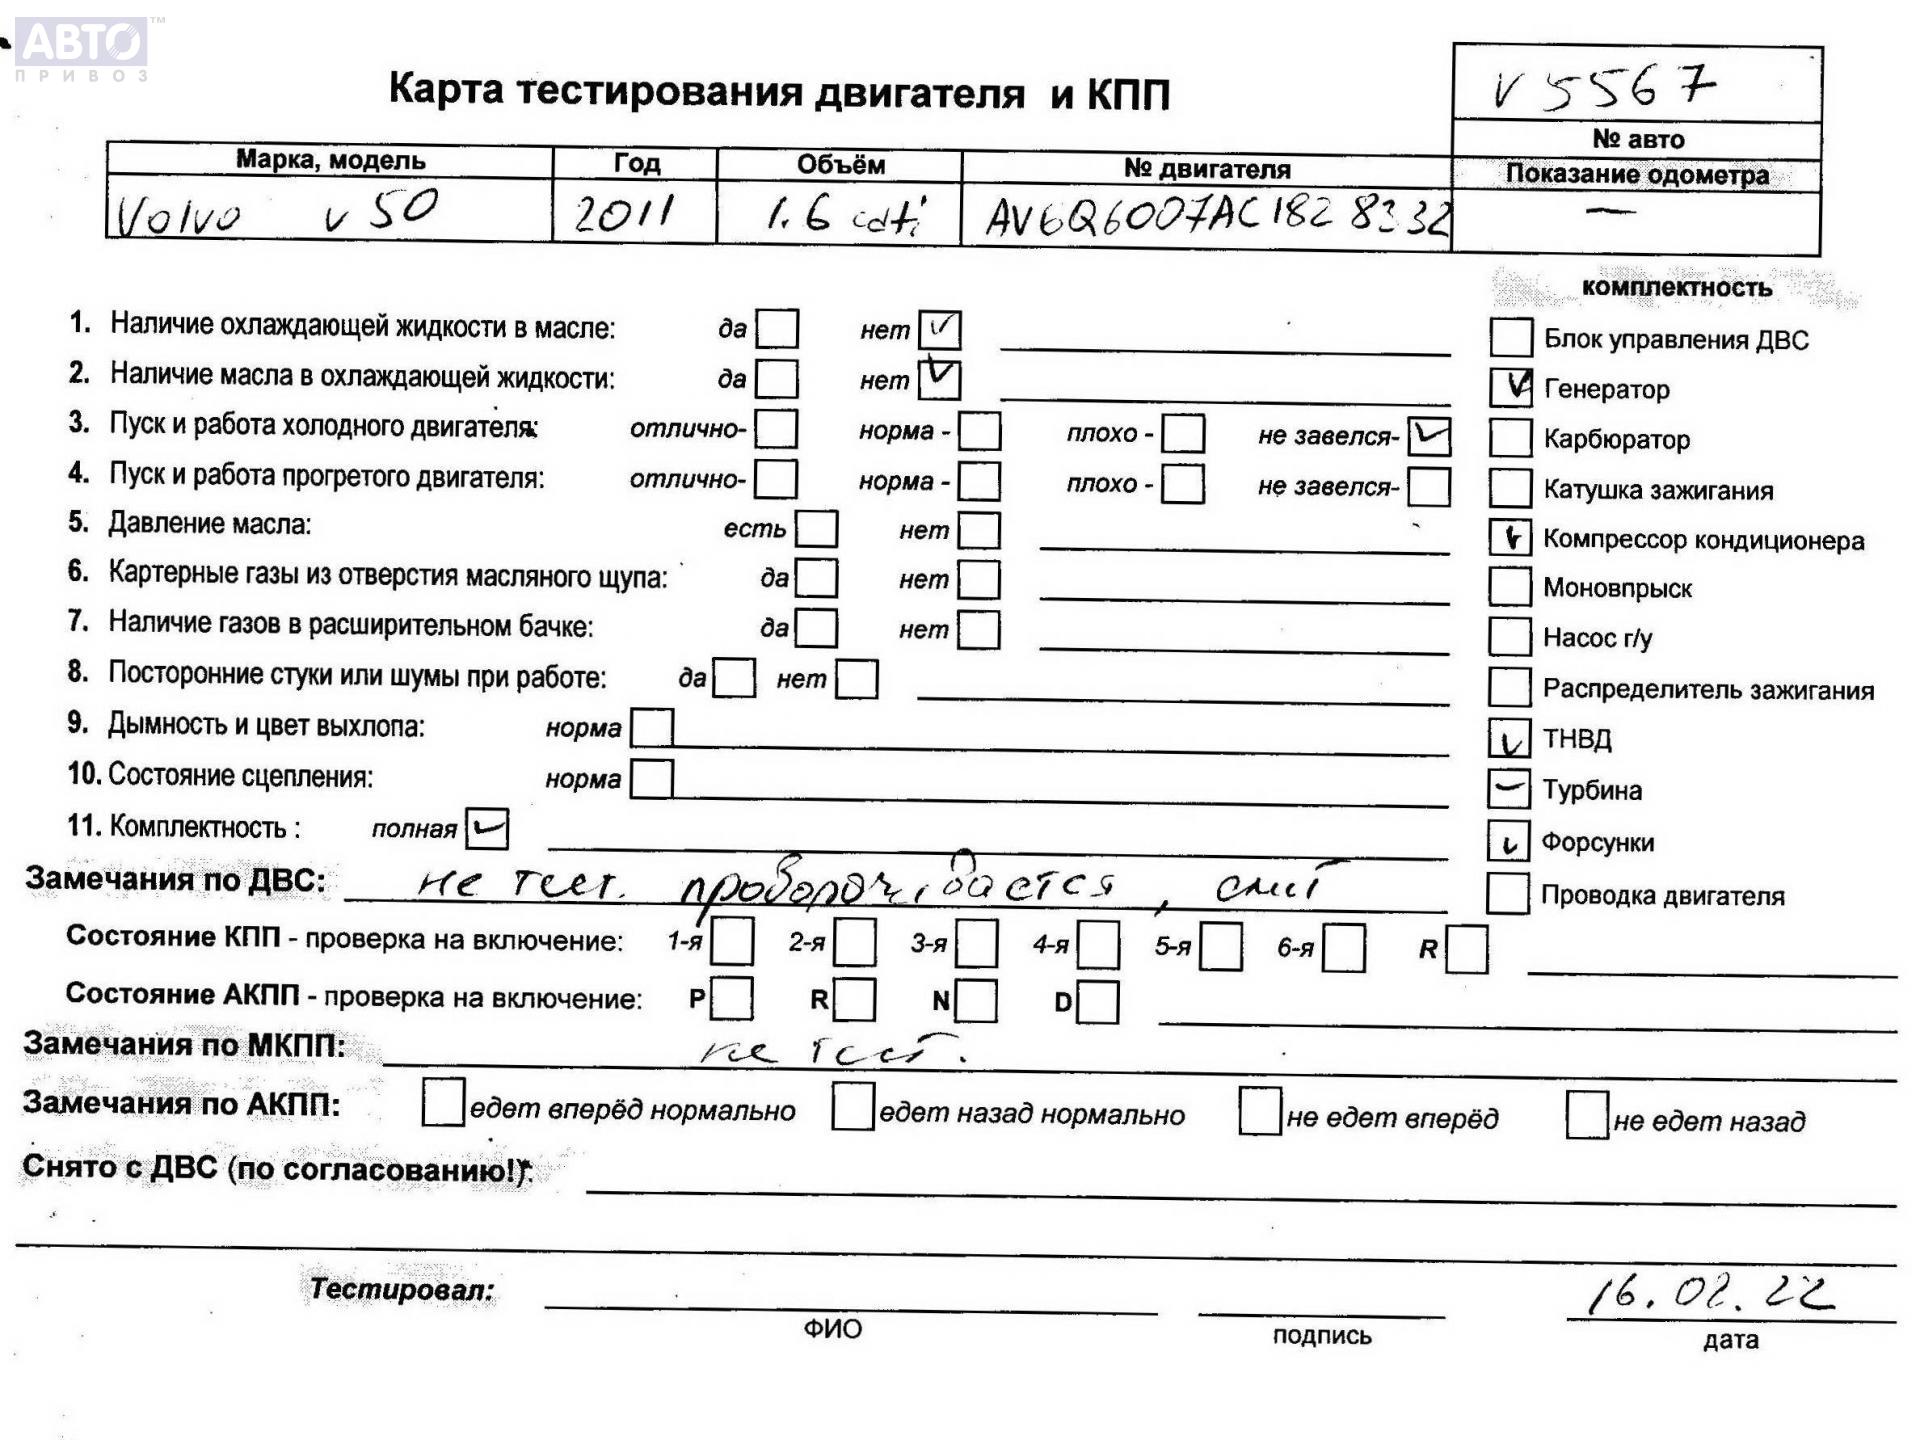 АВТО™
ПРИВОЗ
Карта тестирования двигателя и КПП
V5567
№ авто
Марка, модель Год Объём № двигателя Показание одометра
Volvo v50 2011 1.6 cdti AV6Q6007AC1828332 —
комплектность
1. Наличие охлаждающей жидкости в масле: да нет
Блок управления ДВС
2. Наличие масла в охлаждающей жидкости: да нет
Генератор
3. Пуск и работа холодного двигателя: отлично- норма - плохо - не завелся-
Карбюратор
4. Пуск и работа прогретого двигателя: отлично- норма - плохо - не завелся-
Катушка зажигания
5. Давление масла: есть нет
Компрессор кондиционера
6. Картерные газы из отверстия масляного щупа: да нет
Моновпрыск
7. Наличие газов в расширительном бачке: да нет
Насос г/у
8. Посторонние стуки или шумы при работе: да нет
Распределитель зажигания
9. Дымность и цвет выхлопа: норма
ТНВД
10. Состояние сцепления: норма
Турбина
11. Комплектность : полная
Форсунки
Замечания по ДВС: не тест.
Проводка двигателя
Состояние КПП - проверка на включение: 1-я 2-я 3-я 4-я 5-я 6-я R
Состояние АКПП - проверка на включение: P R N D
Замечания по МКПП: не тест.
Замечания по АКПП: едет вперёд нормально едет назад нормально не едет вперёд не едет назад
Снято с ДВС (по согласованию!):
Тестировал:
16.02.22
ФИО подпись дата